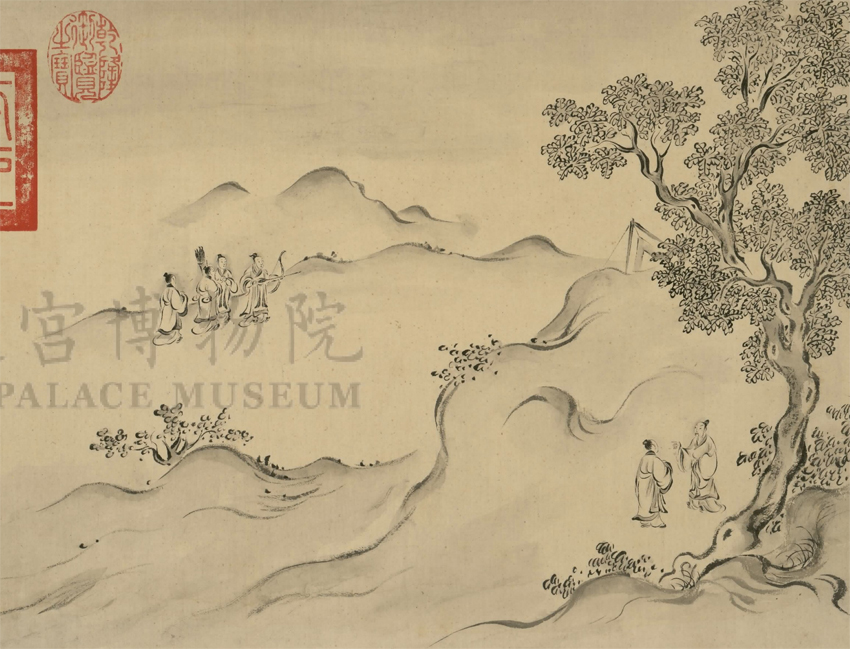 乾隆
御覽
之寶
宮博物院
PALACE MUSEUM